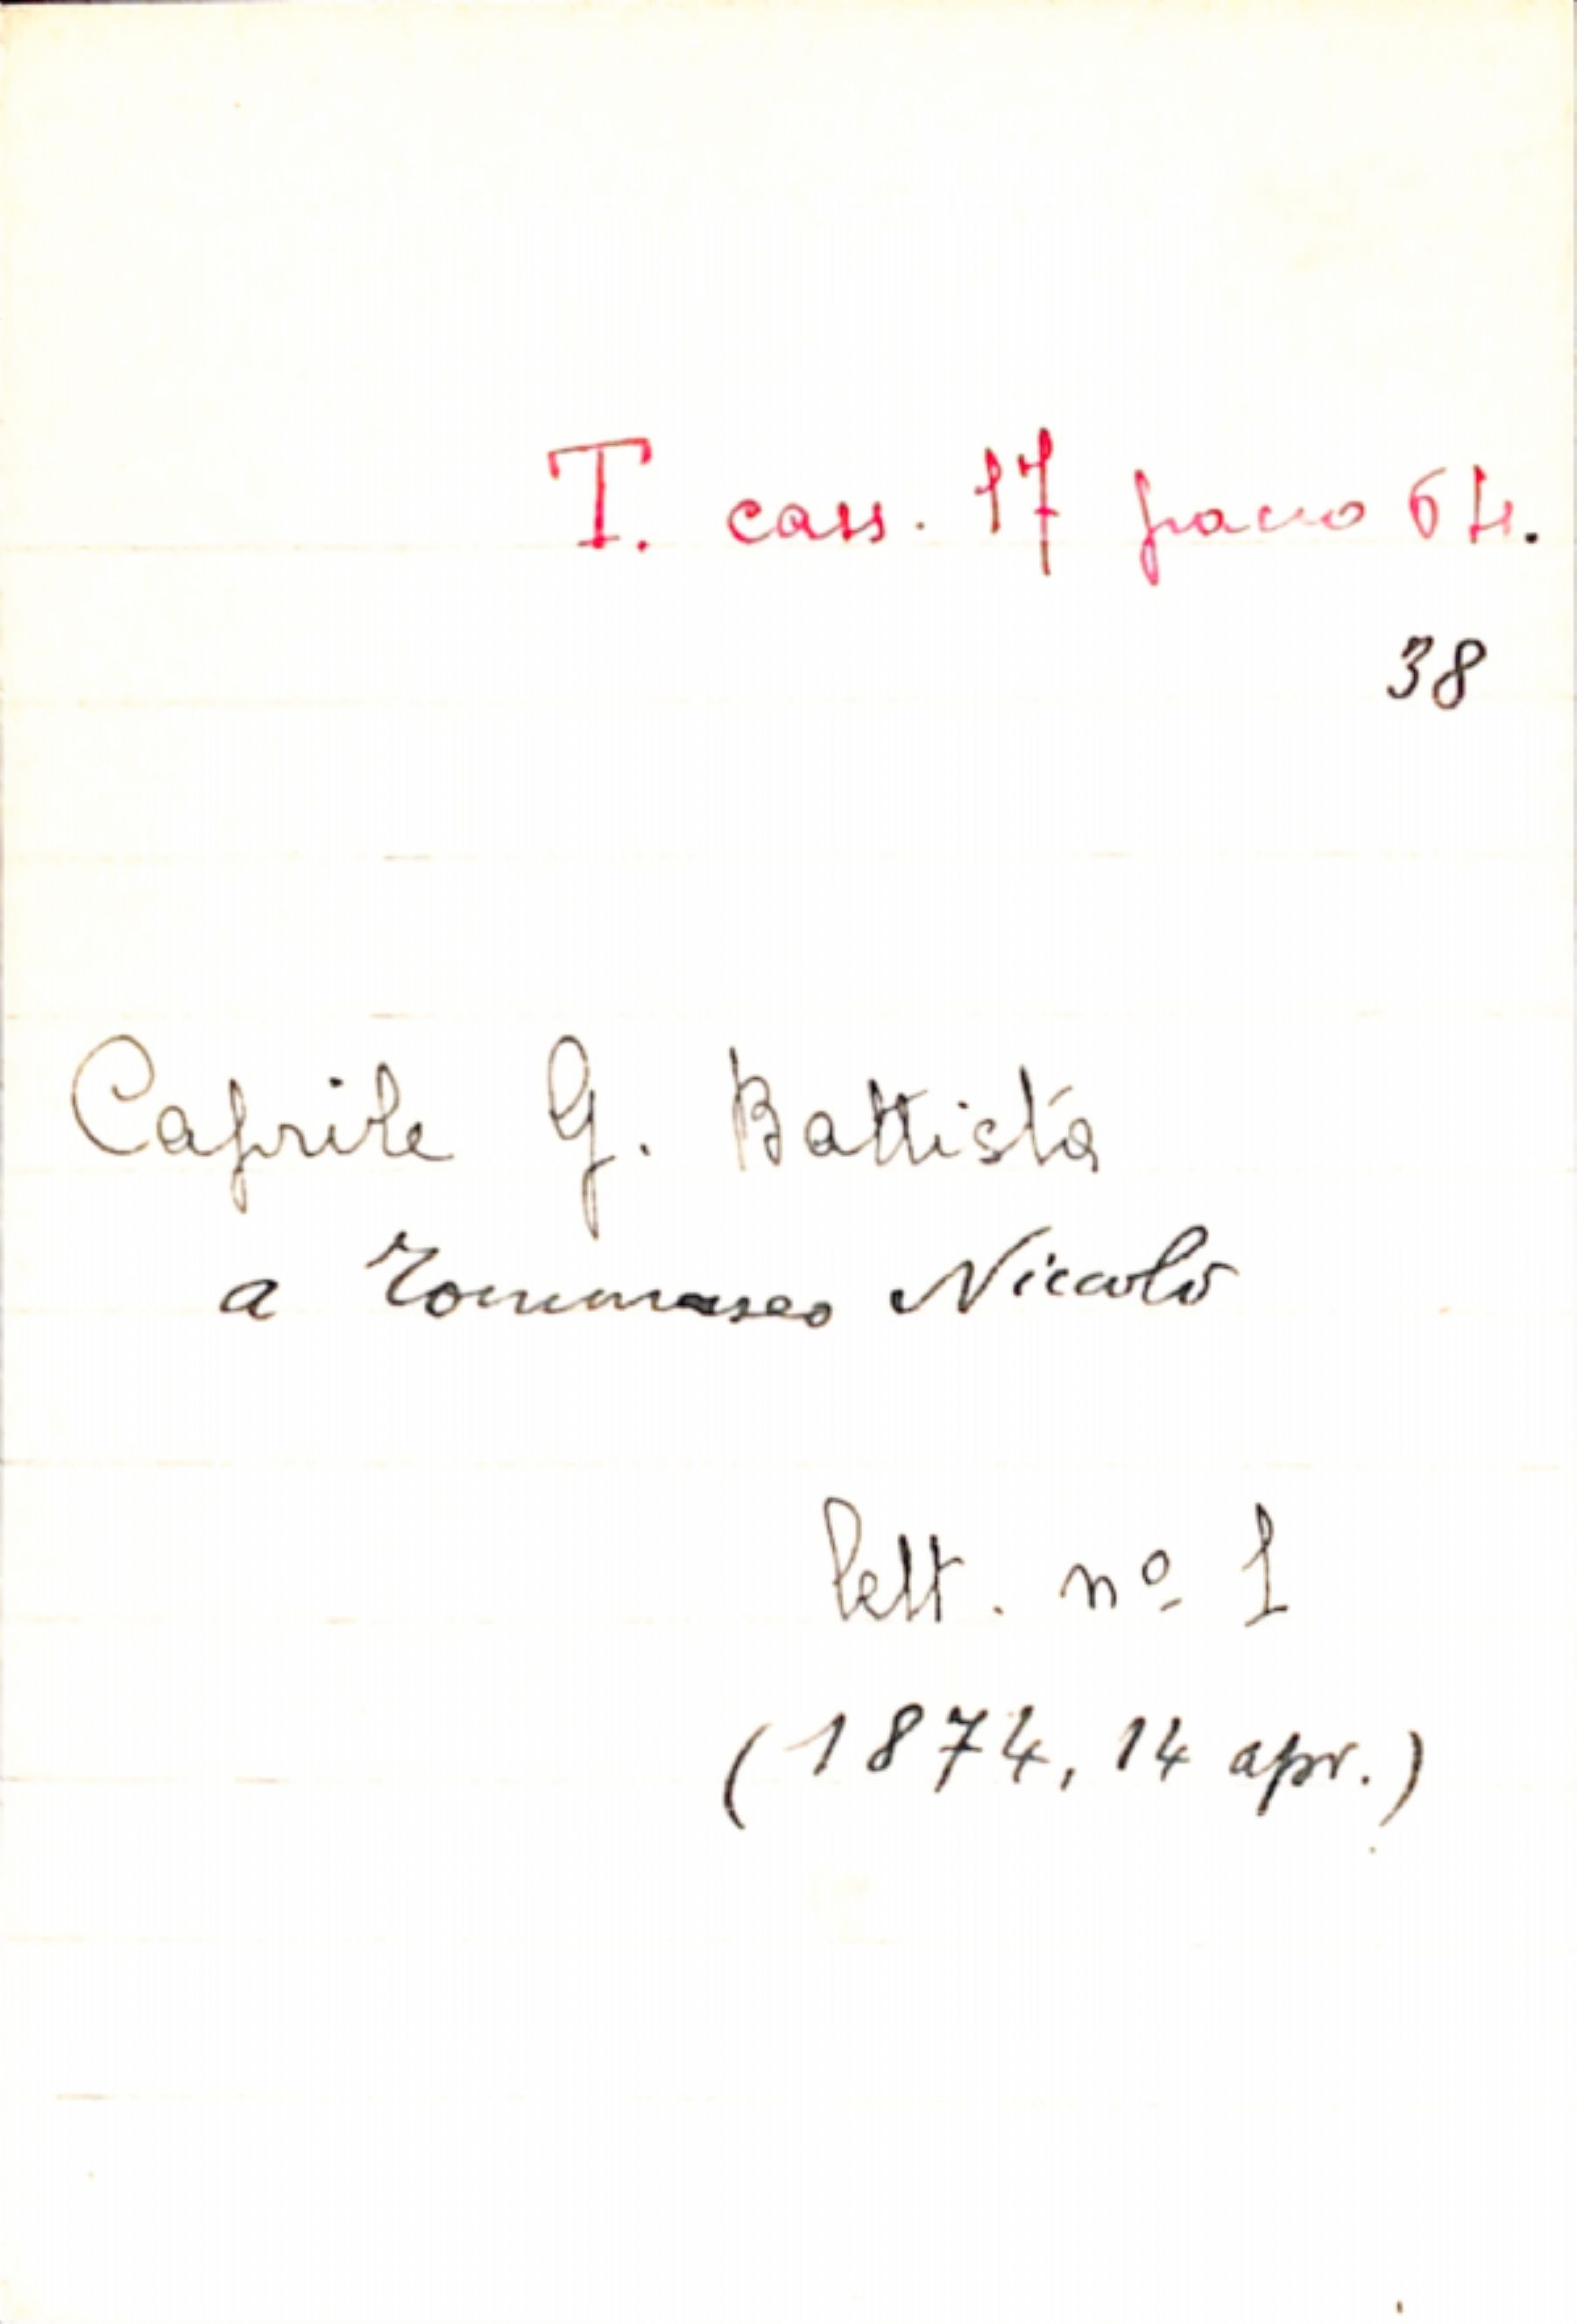 T. cass. 17 pacco 64.
38
Caprile G. Battista
a Tommaseo Nicolò
lett. nº 1
(1874, 14 apr.)